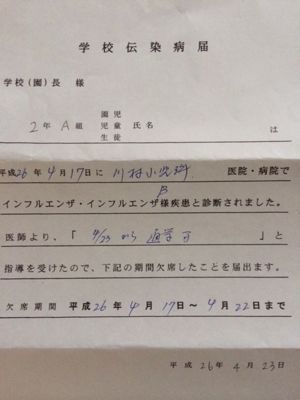 学校伝染病届
学校(園)長 様
園児
2年 A組 児童 氏名 は
生徒
平成26年4月17日に 川村小児科 医院・病院で
B
インフルエンザ・インフルエンザ様疾患と診断されました。
医師より、「 4/23 から 通学可 」と
指導を受けたので、下記の期間欠席したことを届出ます。
欠席期間 平成26年4月17日〜4月22日まで
平成 26年 4月 23日